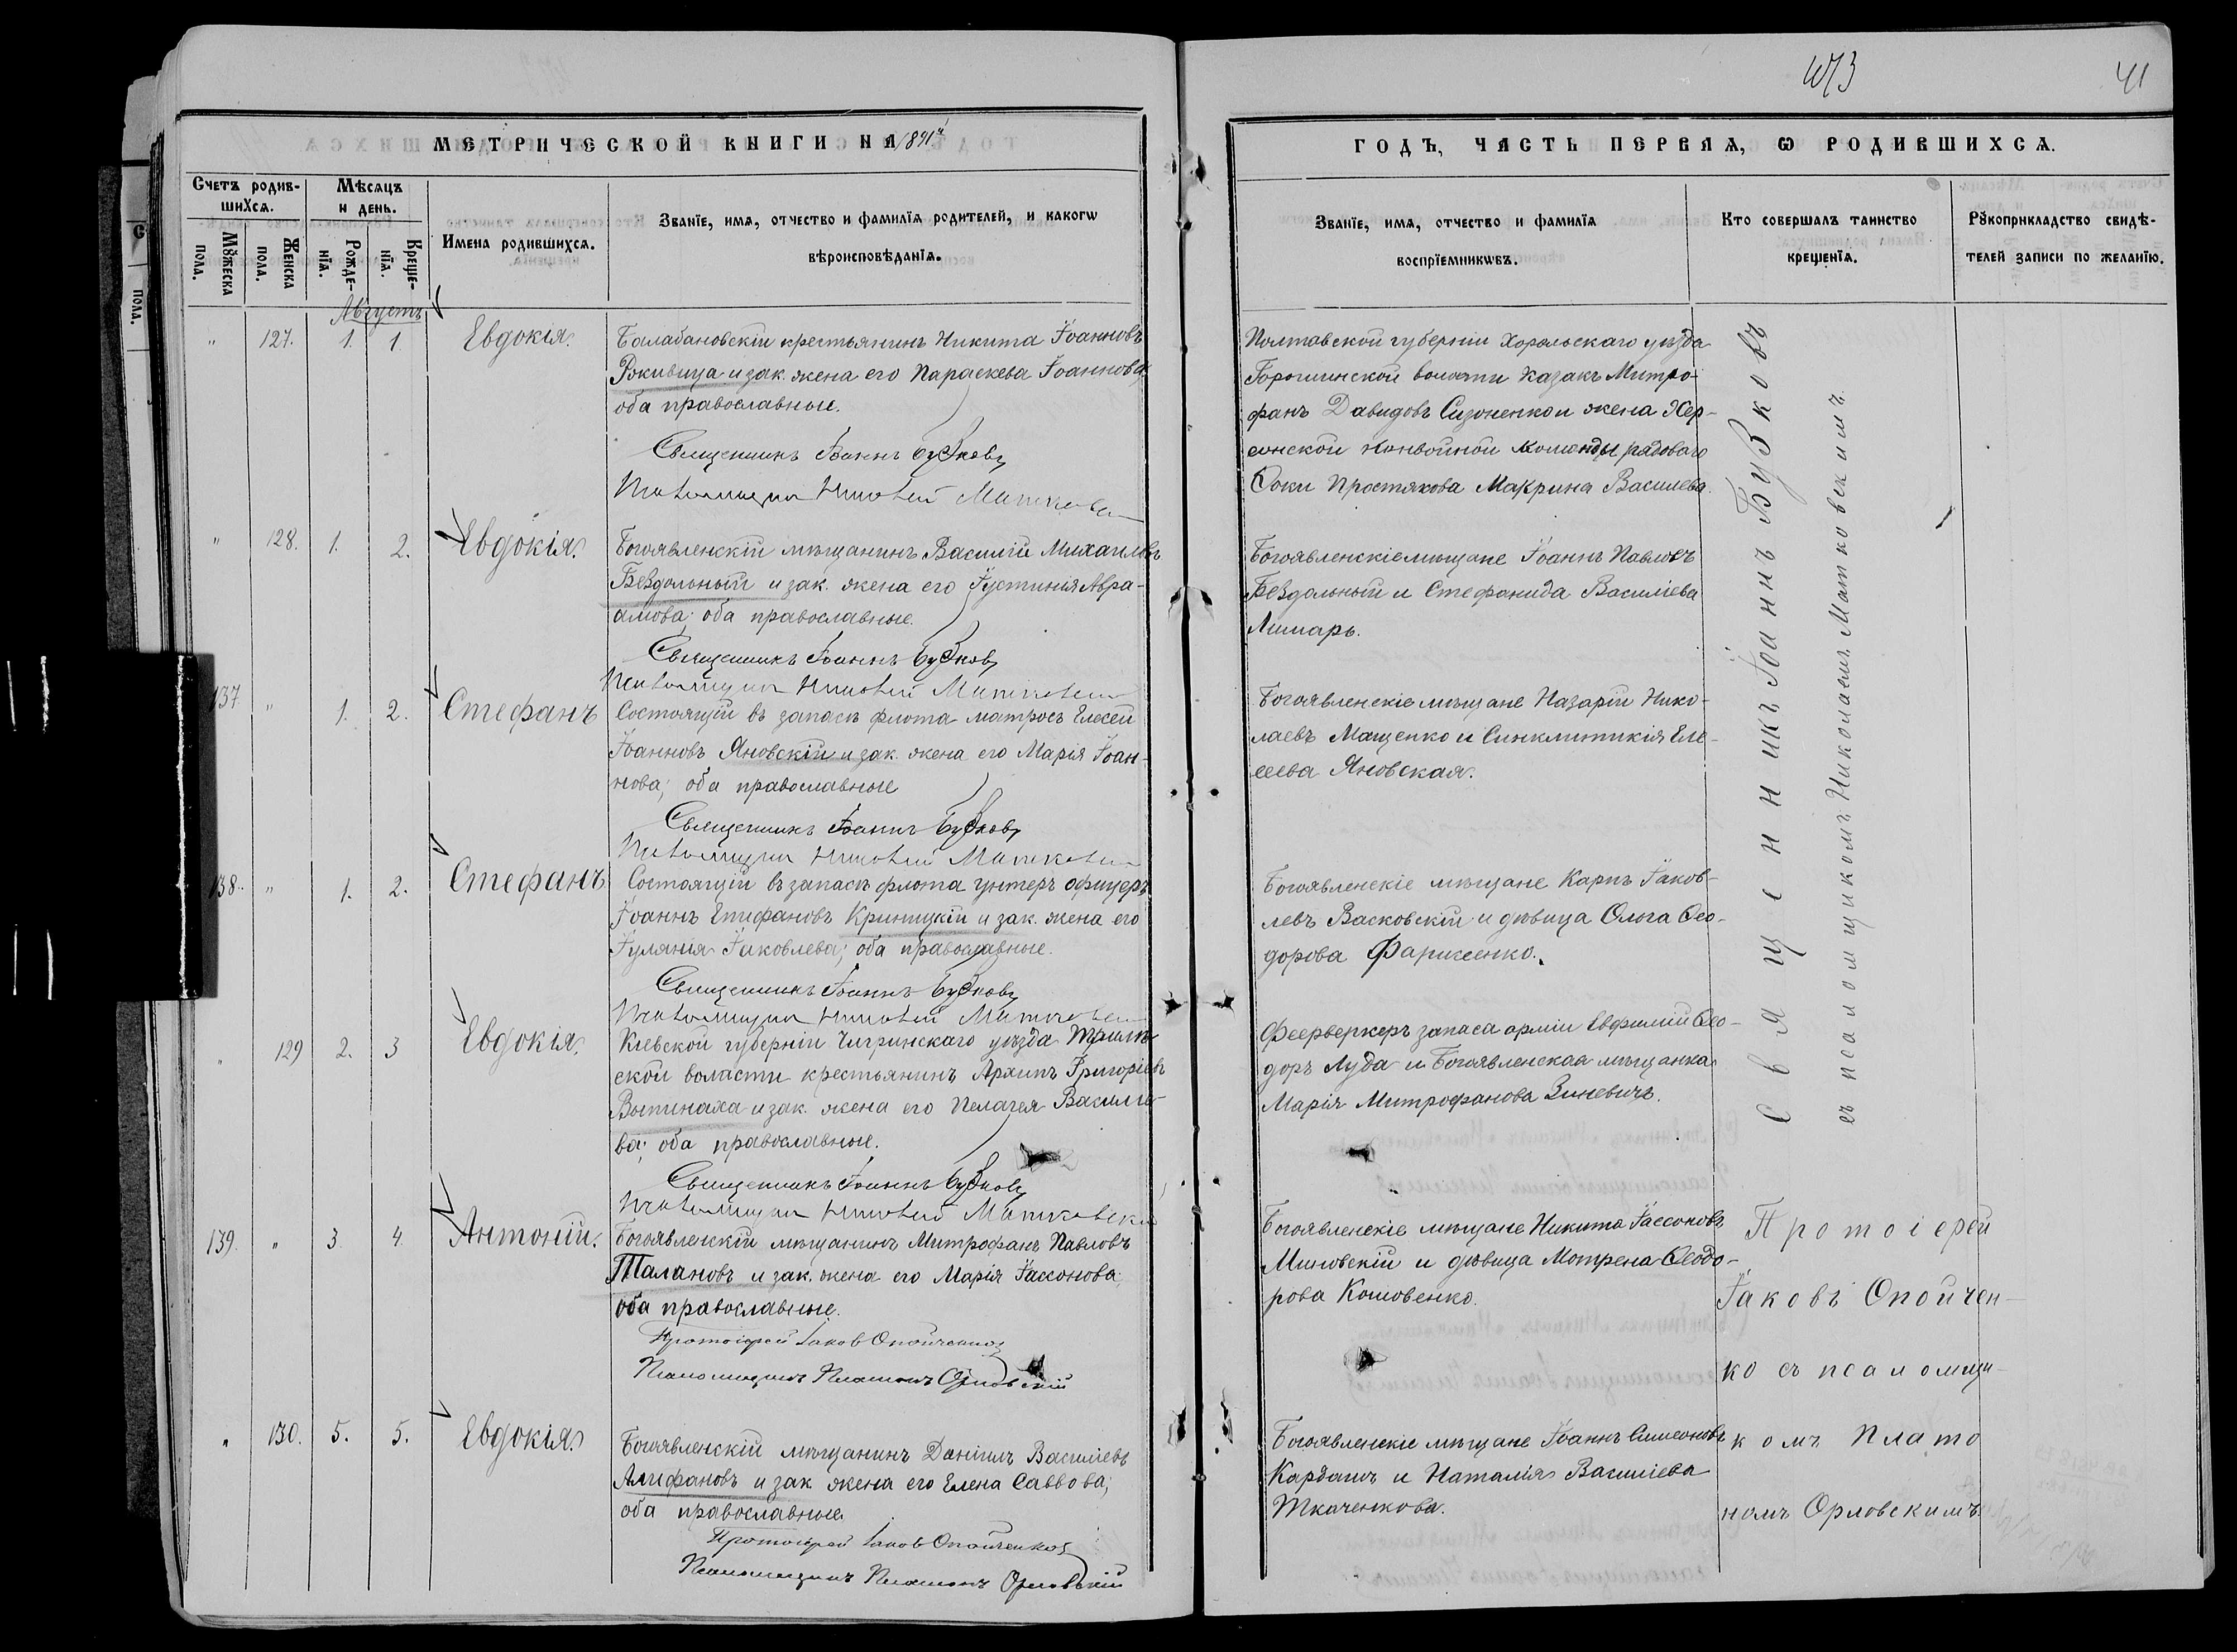 473
41
МЕТРИЧЕСКОЙ КНИГИ НА 1891й
ГОДЪ, ЧАСТЬ ПЕРВАЯ, Ѡ РОДИВШИХСѦ.
Счетъ родив-
шихсѧ.
Мѣсѧцъ
и день.
Мꙋжеска
пола.
Женска
пола.
Рожде-
нїѧ.
Креще-
нїѧ.
Имена родившихсѧ.
Званїе, имѧ, отчество и фамилїѧ родителей, и какогѡ
вѣроисповѣданїѧ.
Званїе, имѧ, отчество и фамилїѧ
воспрїемникѡвъ.
Кто совершалъ таинство
крещенїѧ.
Рꙋкоприкладство свидѣ-
телей записи по желанїю.
Августъ
" 127. 1. 1 Евдокія.
Балабановскій крестьянинъ Никита Іоанновъ
Рокивица и зак. жена его Параскева Іоаннова;
оба православные.
Священникъ Іоаннъ Бузковъ
Псаломщикъ Николай Матковскій
Полтавской губерніи Хорольскаго уѣзда
Горошинской волости казакъ Митро-
фанъ Давидовъ Сизоненко и жена Хер-
сонской конвойной команды рядоваго
Фоки Простякова Макрина Василева.
" 128. 1. 2. Евдокія.
Богоявленскій мѣщанинъ Василій Михаиловъ
Бездольный и зак. жена его Іустинія Авра-
амова; оба православные.
Священникъ Іоаннъ Бузковъ
Псаломщикъ Николай Матковскій
Богоявленскіе мѣщане Іоаннъ Павловъ
Бездольный и Стефанида Василіева
Лимарь.
137 " 1. 2. Стефанъ
Состоящій въ запасѣ флота матросъ Елесей
Іоанновъ Яновскій и зак. жена его Марія Іоан-
нова; оба православные
Священникъ Іоаннъ Бузковъ
Псаломщикъ Николай Матковскій
Богоявленскіе мѣщане Назарій Нико-
лаевъ Мащенко и Синклитикія Еле-
сеева Яновская.
138. " 1. 2. Стефанъ
Состоящій въ запасѣ флота унтеръ офицеръ
Іоаннъ Епифановъ Криницкій и зак. жена его
Іуліанія Іаковлева; оба православные.
Священникъ Іоаннъ Бузковъ
Псаломщикъ Николай Матковскій
Богоявленскіе мѣщане Карпъ Іаков-
левъ Васковскій и дѣвица Ольга Ѳео-
дорова
Священникъ Іоаннъ Бузковъ
съ псаломщикомъ Николаемъ Матковскимъ
" 129 2. 3 Евдокія.
Кіевской губерніи Чигринскаго уѣзда
ской воласти крестьянинъ Архипъ Григоріевъ
Вытинаха и зак. жена его Пелагея Василіе-
ва; оба православные.
Священникъ Іоаннъ Бузковъ
Псаломщикъ Николай Матковскій
Феерверкеръ запаса арміи Евфимій Ѳео-
доръ Луда и Богоявленская мѣщанка
Марія Митрофанова Зиневичъ.
139. " 3 4 Антоній.
Богоявленскій мѣщанинъ Митрофанъ Павловъ
Талановъ и зак. жена его Марія Іассонова;
оба православные.
Протоіерей Іаковъ Опойченко
Псаломщикъ Платонъ Орловскій
Богоявленскіе мѣщане Никита Іассоновъ
и дѣвица Мотрена Ѳеодо-
рова Кошовенко.
" 130. 5. 5. Евдокія.
Богоявленскій мѣщанинъ Даніилъ Василіевъ
Алифановъ и зак жена его Елена Саввова;
оба православные
Протоіерей Іаковъ Опойченко
Псаломщикъ Платонъ Орловскій
Богоявленскіе мѣщане Іоаннъ Симеоновъ
Кардашъ и Наталія Василіева
Ткаченкова.
Протоіерей
Іаковъ Опойчен-
ко съ псаломщи-
комъ Плато
номъ Орловскимъ.